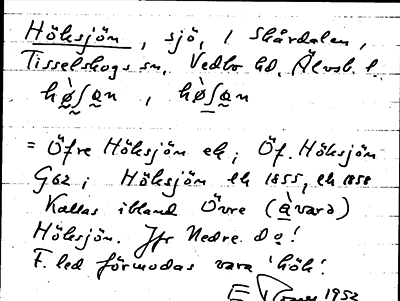 Höksjön, sjö, i Skårdalen,
Tisselskogs sn, Vedbo hd, Älvsb. l.
hø̀ʃən, hø̀ʃan
= Öfre Höksjön ek; Öf. Höksjön
G62; Höksjön ek 1855, ek 1858
Kallas ibland Övre (àvarə)
Höksjön. Jfr Nedre. do!
F. led förmodas vara 'hök'.
E 1952